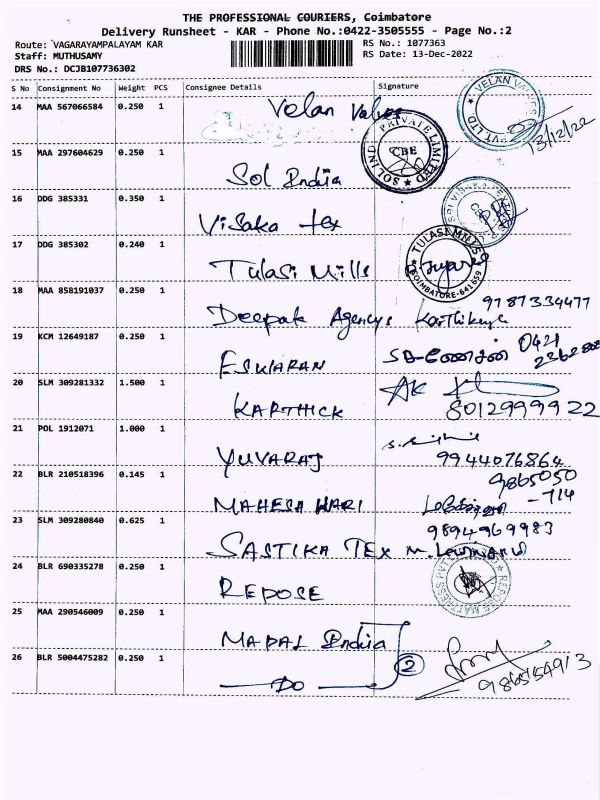 THE PROFESSIONAL COURIERS, Coimbatore
Delivery Runsheet - KAR - Phone No.:0422-3505555 - Page No.:2
Route: VAGARAYAMPALAYAM KAR RS No.: 1077363
Staff: MUTHUSAMY RS Date: 13-Dec-2022
DRS No.: DCJB107736302
S No Consignment No Weight PCS Consignee Details Signature
14 MAA 567066584 0.250 1 Velan Valves
VELAN VALVES PVT LTD
13/12/22
15 MAA 297604629 0.250 1 Sol India
SOL INDIA PRIVATE LIMITED CBE
16 DDG 385331 0.350 1 Visaka tex
17 DDG 385302 0.240 1 Tulasi Mills
TULASI MILLS COIMBATORE-641659
18 MAA 858191037 0.250 1 Deepak Agencys Karthikeya
9787334477
19 KCM 12649187 0.250 1 ESWARAN
0421
20 SLM 309281332 1.500 1 KARTHICK AK
8012999922
21 POL 1912071 1.000 1 YUVARAJ
9944076864
22 BLR 210518396 0.145 1 MAHESH WARI
9865050
-714
23 SLM 309280840 0.625 1 SASTIKA TEX
9894969983
24 BLR 690335278 0.250 1 REPOSE
REPOSE MATTRESS PVT LTD
25 MAA 290546009 0.250 1 MADAL India
26 BLR 5004475282 0.250 1 DO 2